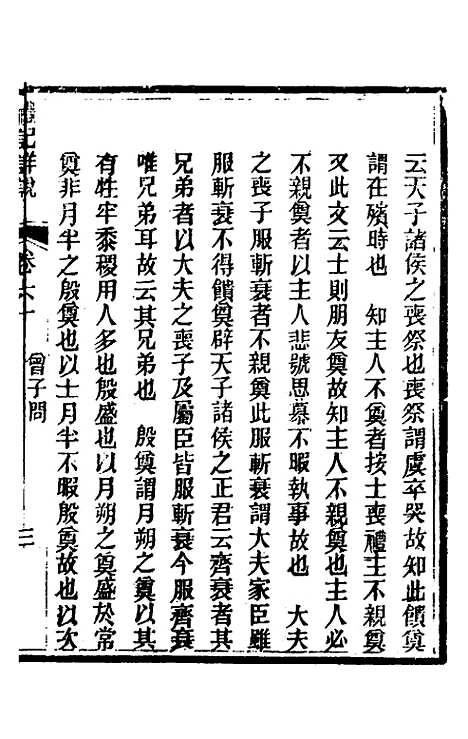 云天子諸侯之喪祭也喪祭謂虞卒哭故知此饋奠
謂在殯時也　知主人不奠者按士喪禮主不親奠
又此文云士則朋友奠故知主人不親奠也主人必
不親奠者以主人悲號思慕不暇執事故也　大夫
之喪子服斬衰者不親奠此服斬衰謂大夫家臣雖
服斬衰不得饋奠辟天子諸侯之正君云齊衰者其
兄弟者以大夫之喪子及屬臣皆服斬衰今服齊衰
唯兄弟耳故云其兄弟也　殷奠謂月朔之奠以其
有牲牢黍稷用人多也殷盛也以月朔之奠盛於常
奠非月半之殷奠也以士月半不暇殷奠故也以次
禮記詳說　卷六十　曾子問　三